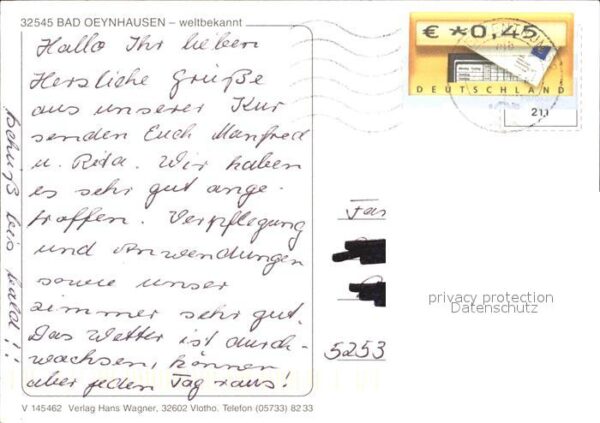 32545 BAD OEYNHAUSEN – weltbekannt
Hallo Ihr lieben
Herzliche Grüße
aus unserer Kur
senden Euch Manfred
u. Rita. Wir haben
es sehr gut ange-
troffen. Verpflegung
und Anwendungen
sowie unser
zimmer sehr gut.
Das Wetter ist durch-
wachsen, können
aber jeden Tag raus!
tschüß bis bald!!
€ *0,45
DEUTSCHLAND
211
Fam
5253
privacy protection
Datenschutz
V 145462 Verlag Hans Wagner, 32602 Vlotho. Telefon (05733) 8233